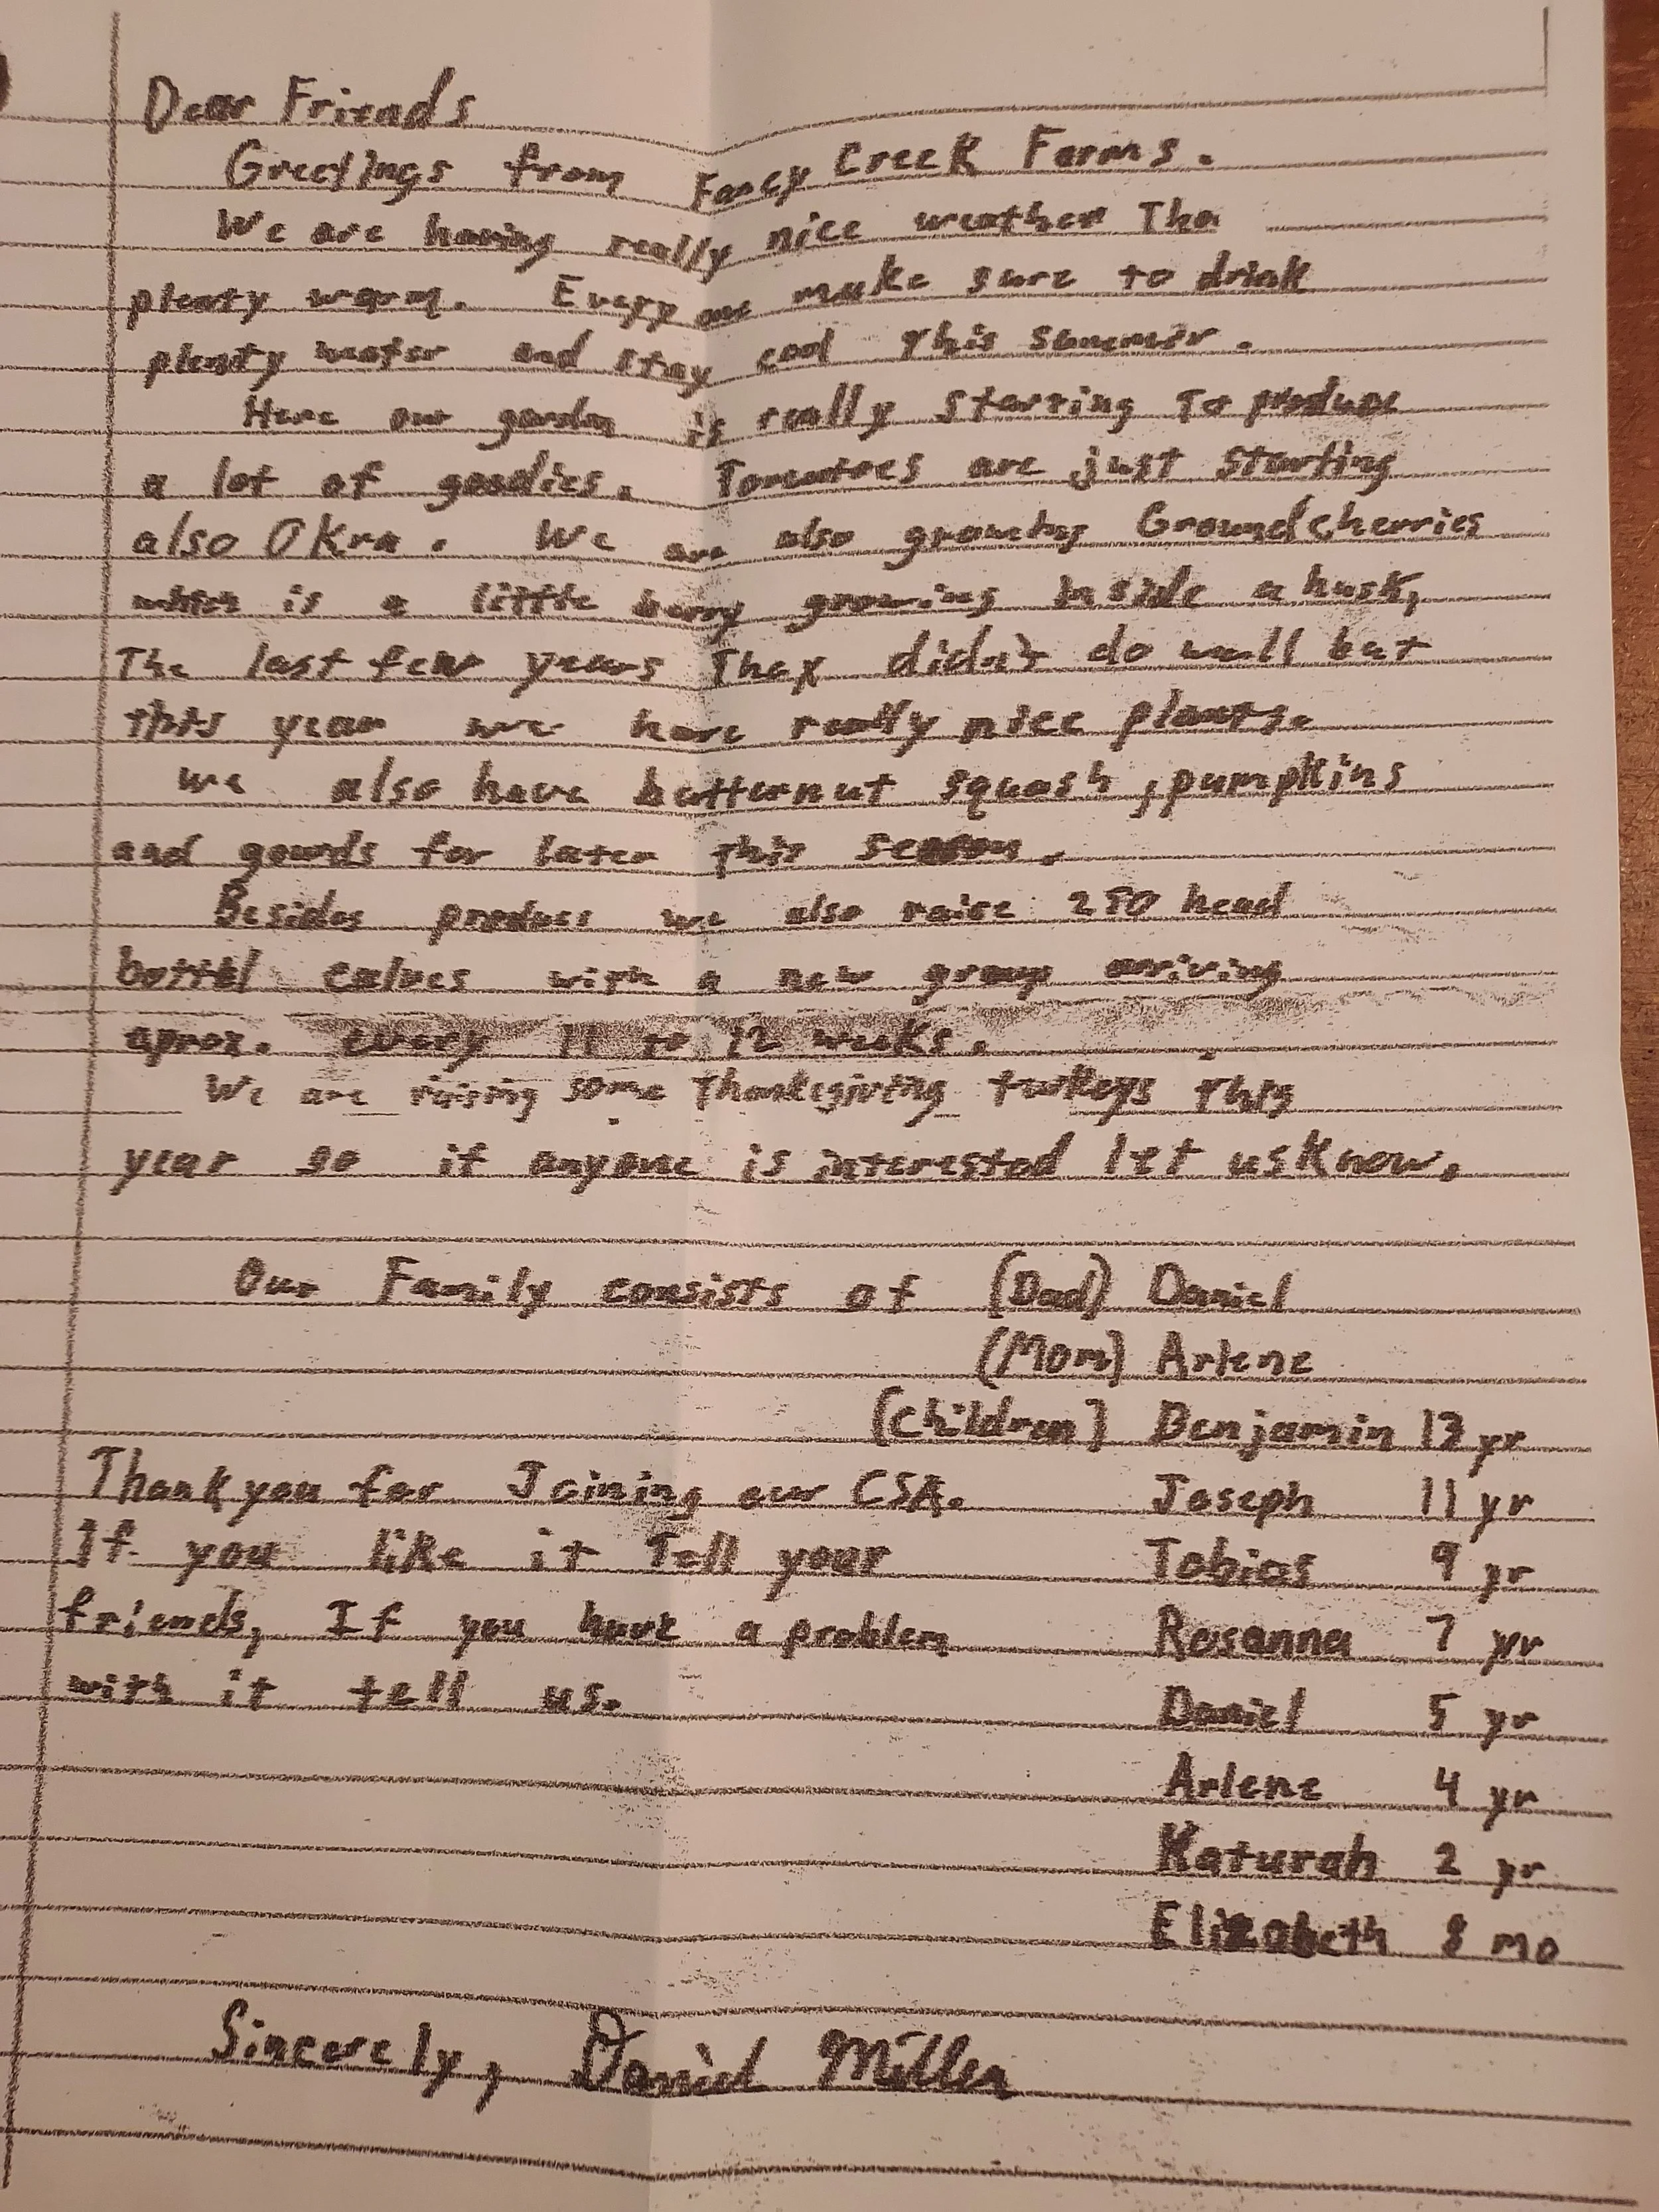 Dear Friends
Greetings from Fancy Creek Farms.
We are having really nice weather Tho
plenty warm. Everyone make sure to drink
plenty water and stay cool This summer.
Here our garden is really starting To produce
a lot of goodies. Tomatoes are just starting
also Okra. We are also growing Groundcherries
which is a little berry growing inside a husk,
The last few years They didn't do well but
this year we have really nice plants.
we also have butternut squash, pumpkins
and gourds for later this season.
Besides produce we also raise 250 head
bottel calves with a new group arriving
aprox. every 11 to 12 weeks.
We are raising some Thanksgiving turkeys this
year so if anyone is interested let us know.
Our Family consists of (Dad) Daniel
(Mom) Arlene
(Children) Benjamin 13 yr
Thank you for Joining our CSA. Joseph 11 yr
If you like it Tell your Tobias 9 yr
friends, If you have a problem Rosanna 7 yr
with it tell us. Daniel 5 yr
Arlene 4 yr
Katurah 2 yr
Elizabeth 8 mo
Sincerely, Daniel Miller